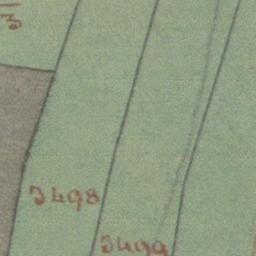 3
3498
3499